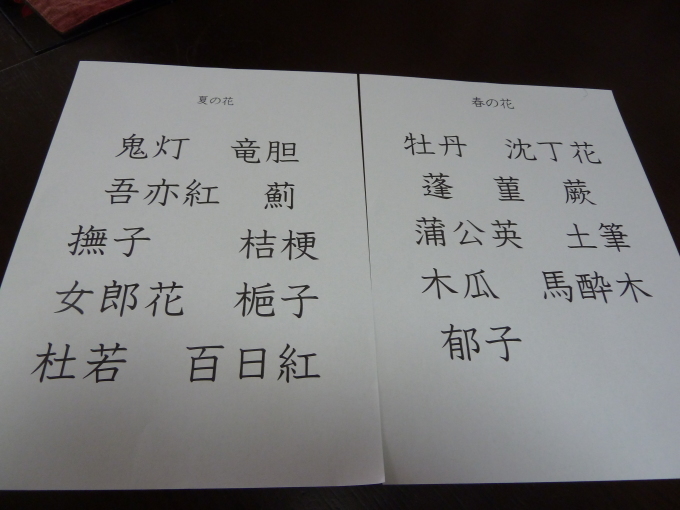 夏の花
鬼灯 竜胆
吾亦紅 薊
撫子 桔梗
女郎花 梔子
杜若 百日紅
春の花
牡丹 沈丁花
蓬 菫 蕨
蒲公英 土筆
木瓜 馬酔木
郁子